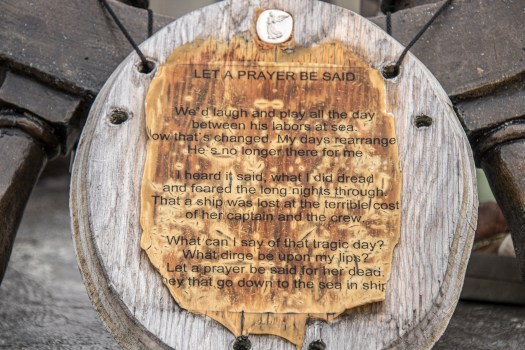 LET A PRAYER BE SAID
We'd laugh and play all the day
between his labors at sea.
Now that's changed. My days rearrange
He's no longer there for me
I heard it said, what I did dread
and feared the long nights through
That a ship was lost at the terrible cost
of her captain and the crew
What can I say of that tragic day?
What dirge be upon my lips?
Let a prayer be said for her dead.
hey that go down to the sea in ship